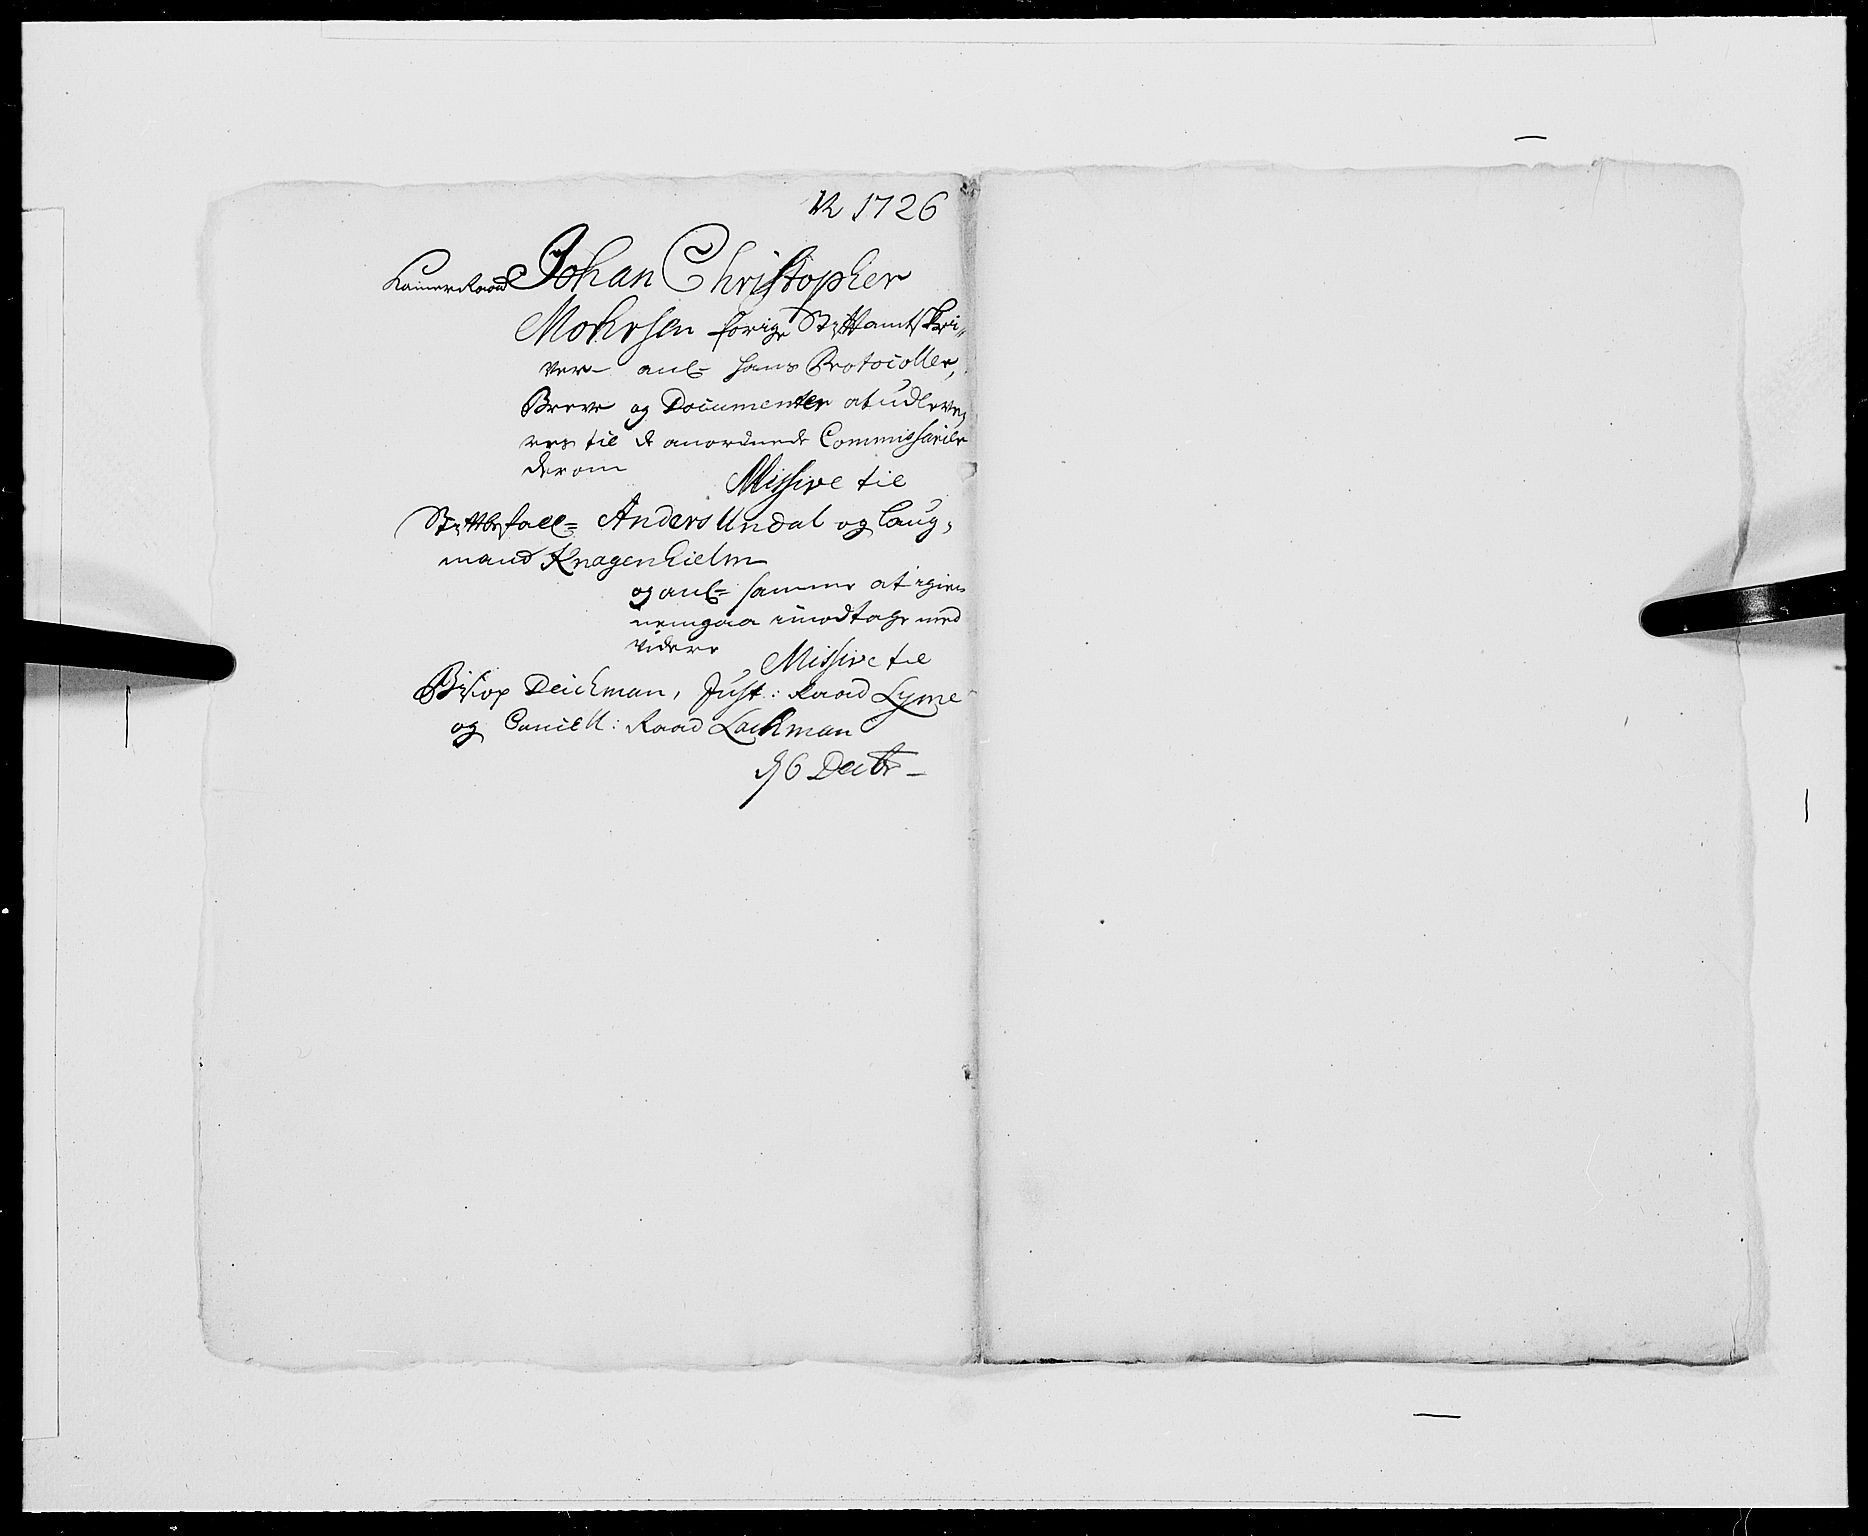 1726
Kamer Raad Johan Christopher
Mohrsen forige Stiftamtskri,,
ver anl= hans Protocoller,
Breve og Documenter at udleve,
res til de anordnede Commissarier
derom
Missive til
Stiftbefall= Anders Undal og Laug,
mand Knagenhielm
og anl= samme at igien
nemgaa imodtage med
videre
Missive til
Biscop Deichman, Just: Raad Lyme
og Cancell: Raad Lachman
6 Decbr